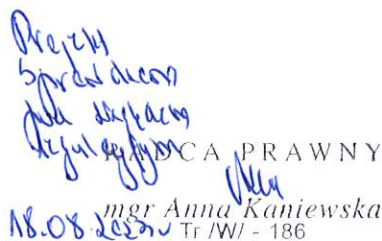 Projekt
sprawdzono
pod względem
RADCA PRAWNY
mgr Anna Kaniewska
18.08.2023r. Tr /W/ - 186